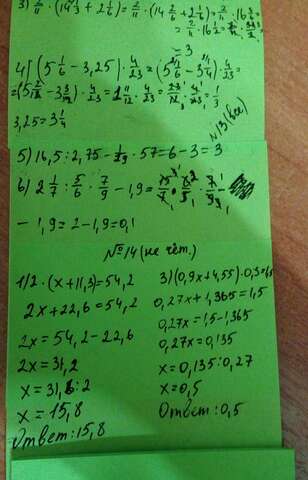 3) 2/11 · (14 2/6 + 2 1/6) = 2/11 · 16 1/2 =
= 3
4) (5 1/6 - 3,25) · 4/23 = (5 1/6 - 3 1/4) · 4/23 =
= (5 2/12 - 3 3/12) · 4/23 = 1 11/12 · 4/23 = 23/12 · 4/23 = 1/3
3,25 = 3 1/4
№13 (все)
5) 16,5 : 2,75 - 1/19 · 57 = 6 - 3 = 3
6) 2 1/7 : 5/6 · 7/9 - 1,9 = 15/7 · 6/5 · 7/9 -
- 1,9 = 2 - 1,9 = 0,1
№14 (не чет.)
1) 2 · (x + 11,3) = 54,2
2x + 22,6 = 54,2
2x = 54,2 - 22,6
2x = 31,2
x = 31,6 : 2
x = 15,8
Ответ: 15,8
3) (0,9x + 4,55) · 0,3 = 1,5
0,27x + 1,365 = 1,5
0,27x = 1,5 - 1,365
0,27x = 0,135
x = 0,135 : 0,27
x = 0,5
Ответ: 0,5